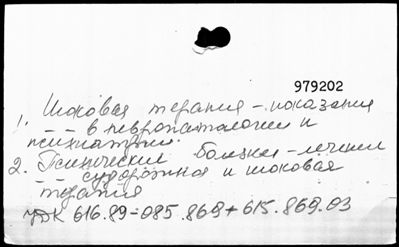 979202
1. Шоковая терапия - показания
- - в невропатологии и
психиатрии.
2. Психические болезни - лечение
- - судорожная и шоковая
терапия
УДК 616.89=085.869+615.869.03